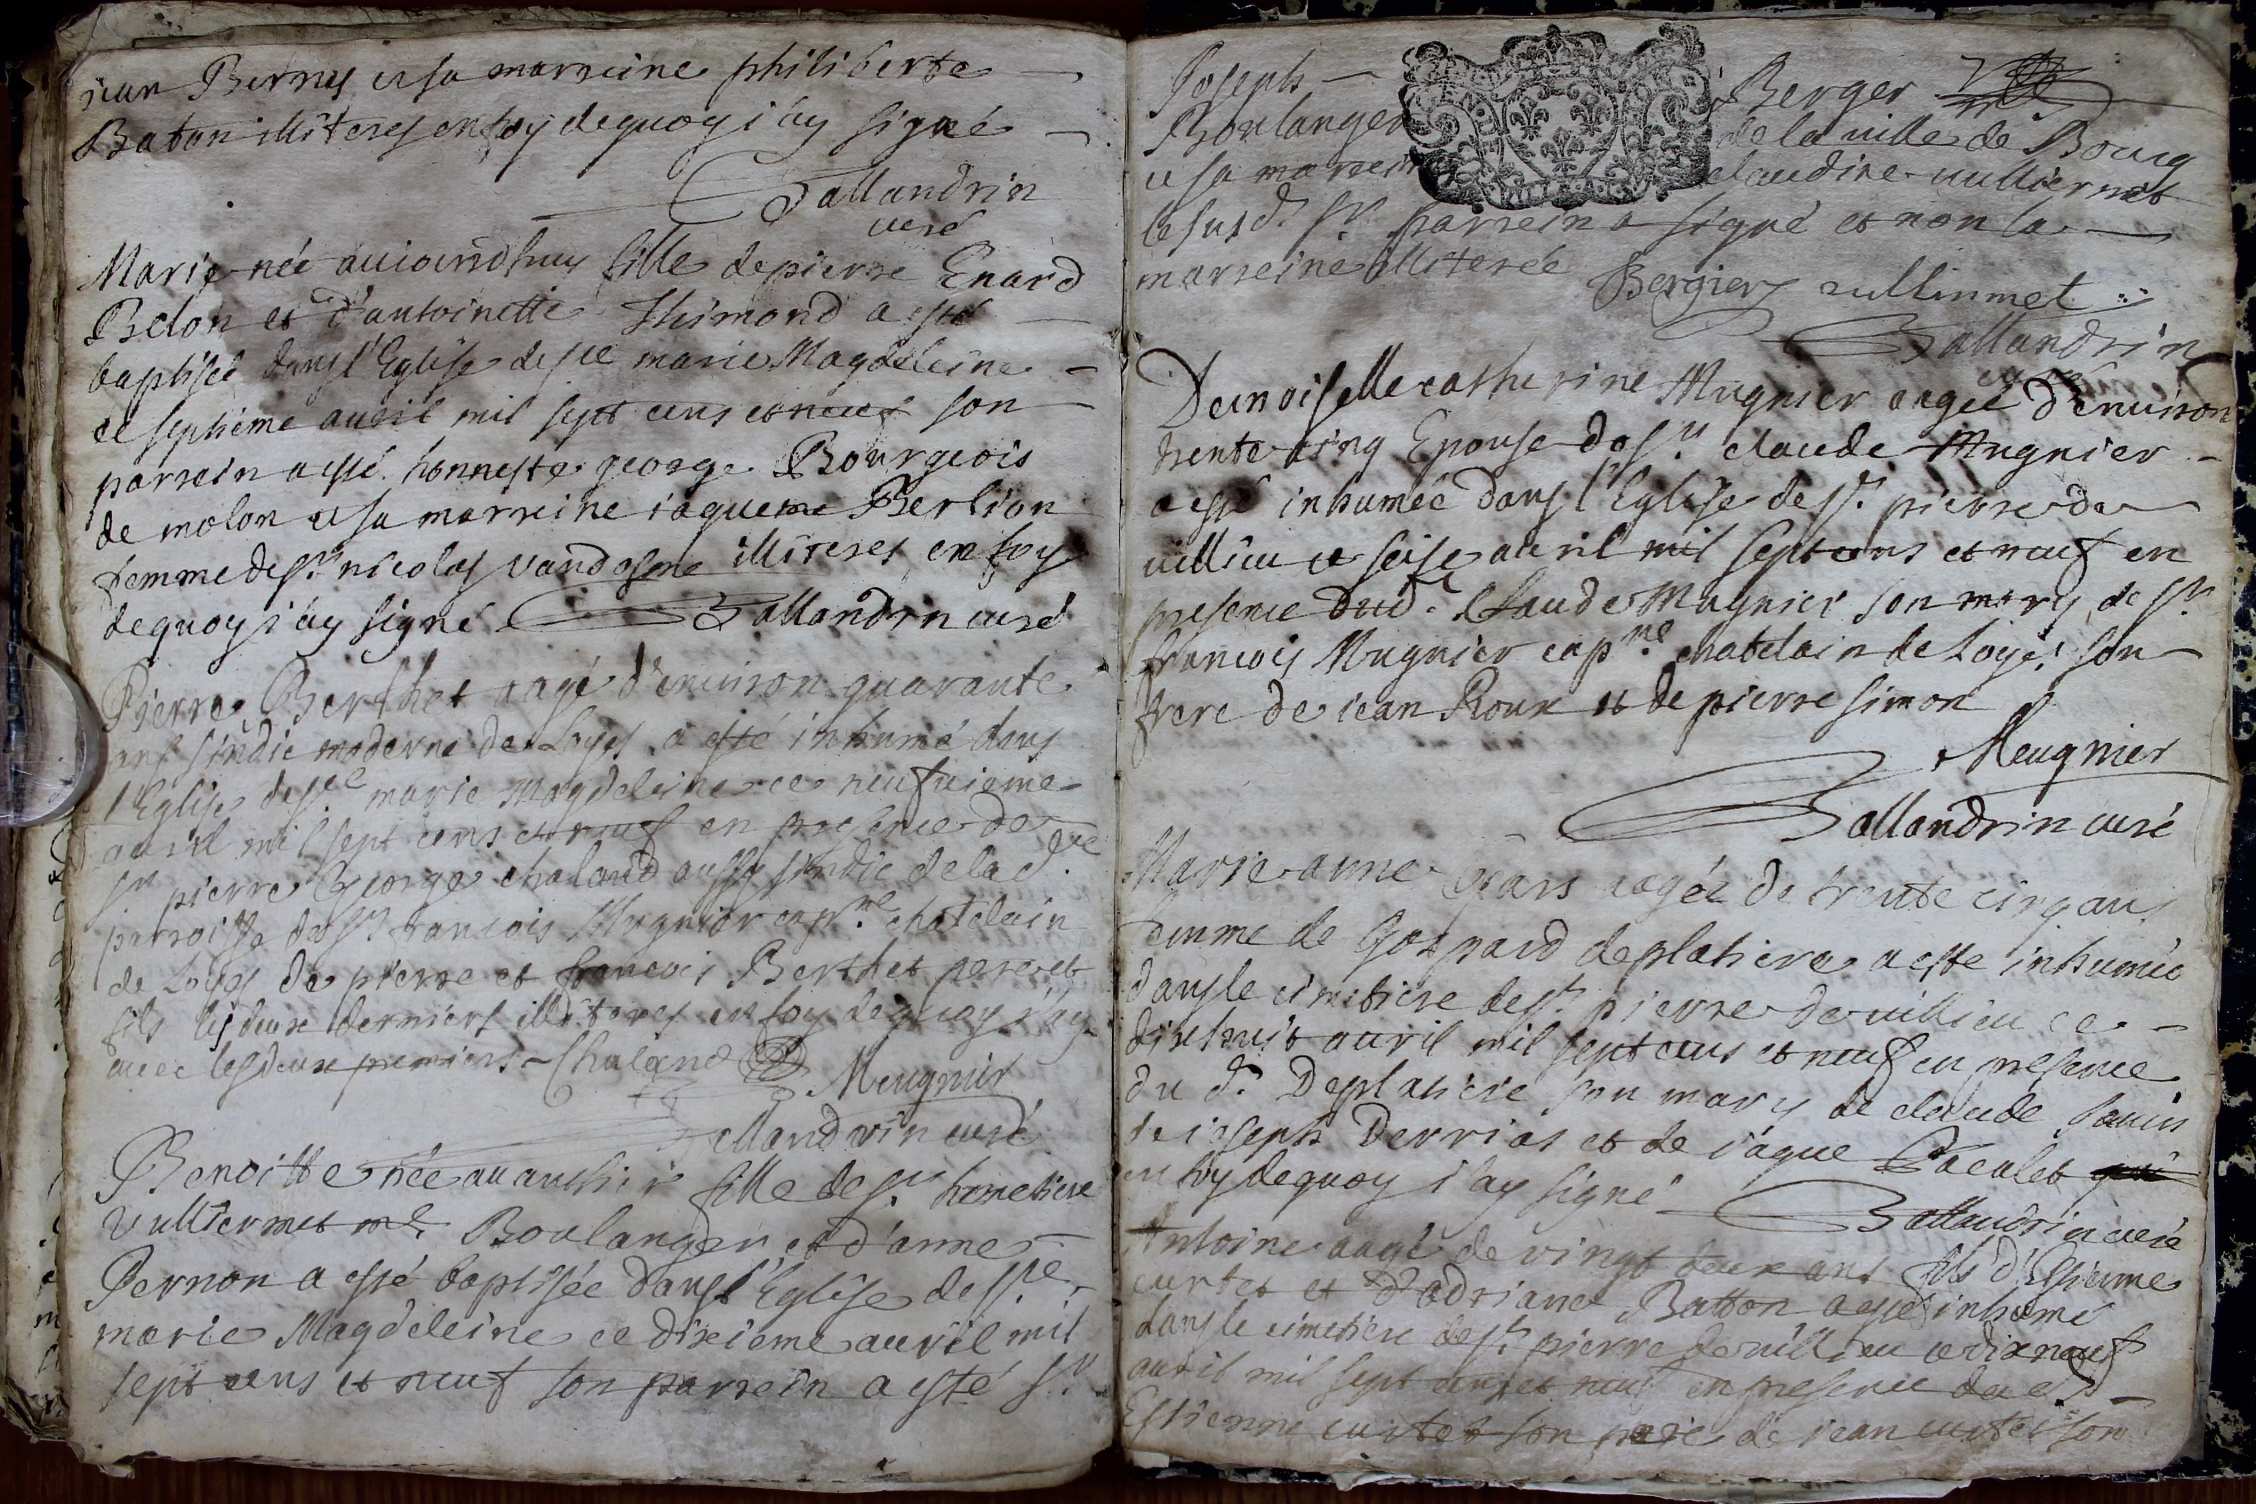 jean Bernus et sa marreine philiberte
Baton illiterés en foy de quoy i'ay signé
Ballandrin
curé
Marie née auiourd'huy fille de pierre Enard
Belon et d'antoinette Thimond a esté
baptisée dans l'Eglise de ste marie Magdeleine
ce septieme auril mil sept cens et neuf son
parrein a esté honneste george Bourgeois
de molon et sa marreine iaqueme Berlion
femme de sr nicolas vandosme illiterés en foy
de quoy i'ay signé Ballandrin curé
Pierre Berthet aagé d'enuiron quarante
ans sindic moderne de Loyes a esté inhumé dans
l'Eglise de ste marie Magdeleine ce neufuieme
auril mil sept cens et neuf en presence de
sr pierre George chaland aussy sindic de la dte
parroisse de sr francois Mugnier capne chatelain
de Loyes de pierre et francois Berthet pere et
fils les deux derniers illiterés en foy de quoy i'ay
auec les deux premiers Chaland Meugnier
Ballandrin curé
Benoitte née auanthier fille de sr
Vulliermet me Boulanger et d'anne
Pernon a esté baptisée dans l'Eglise de ste
marie Magdeleine ce dixieme auril mil
sept cens et neuf son parrein a esté sr
Joseph Berger
Boulanger de la uille de Bourg
et sa marreine claudine uulliermet
le susd. sr parrein a signé et non la
marreine illiterée Bergier uullinmet
Ballandrin
Demoiselle catherine Mugnier aagée d'enuiron
trente cinq Epouse de sr claude Mugnier
a esté inhumée dans l'Eglise de st. pierre de
uillieu ce seise auril mil sept cens et neuf en
presence dud. Claude Mugnier son mary de sr
francois Mugnier capne chatelain de Loyes son
frere de iean Roux et de pierre simon
Meugnier
Ballandrin curé
Marie anne aagée de trente cinq ans
femme de Gaspard deplatiere a esté inhumée
dans le cimetiere de st. pierre de uillieu ce
dixhuit auril mil sept cens et neuf en presence
du d. Deplatiere son mary de claude
de ioseph Derrias et de iaque Pacalet
en foy de quoy i'ay signé
Ballandrin curé
Antoine aagé de vingt deux ans fils d'Estienne
curtet et d'adriane Batton a esté inhumé
dans le cimetiere de st. pierre de uillieu ce dix neuf
auril mil sept cens et neuf en presence du d.
Estienne curtet son pere de iean curtet son